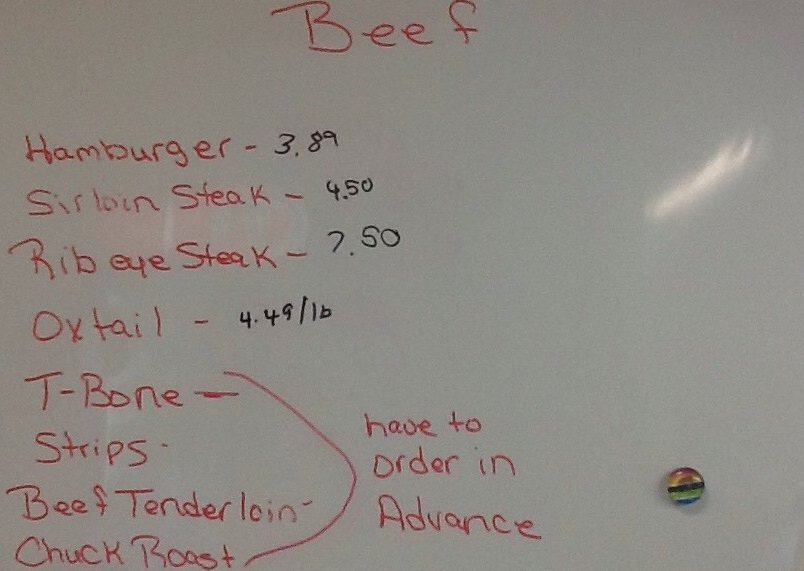 Beef
Hamburger - 3.89
Sirloin Steak - 4.50
Rib eye Steak - 7.50
Oxtail - 4.49/lb
T-Bone -
Strips -
Beef Tenderloin -
Chuck Roast
have to
order in
Advance